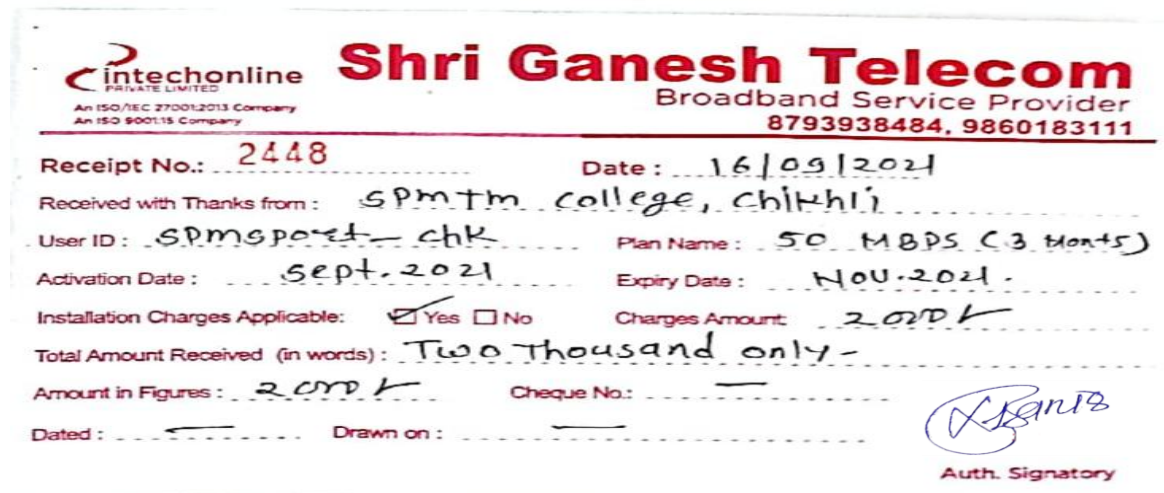 intechonline
PRIVATE LIMITED
An ISO/IEC 27001:2013 Company
An ISO 9001:15 Company
Shri Ganesh Telecom
Broadband Service Provider
8793938484, 9860183111
Receipt No.: 2448 Date : 16/09/2021
Received with Thanks from : SPMTM College, Chikhli
User ID : SPMSPORT_CHK Plan Name : 50 MBPS (3 Monts)
Activation Date : Sept. 2021 Expiry Date : NOV. 2021.
Installation Charges Applicable: ☑ Yes ☐ No Charges Amount: 2000/-
Total Amount Received (in words) : Two Thousand only -
Amount in Figures : 2000/- Cheque No.: —
Dated : — Drawn on : —
Auth. Signatory